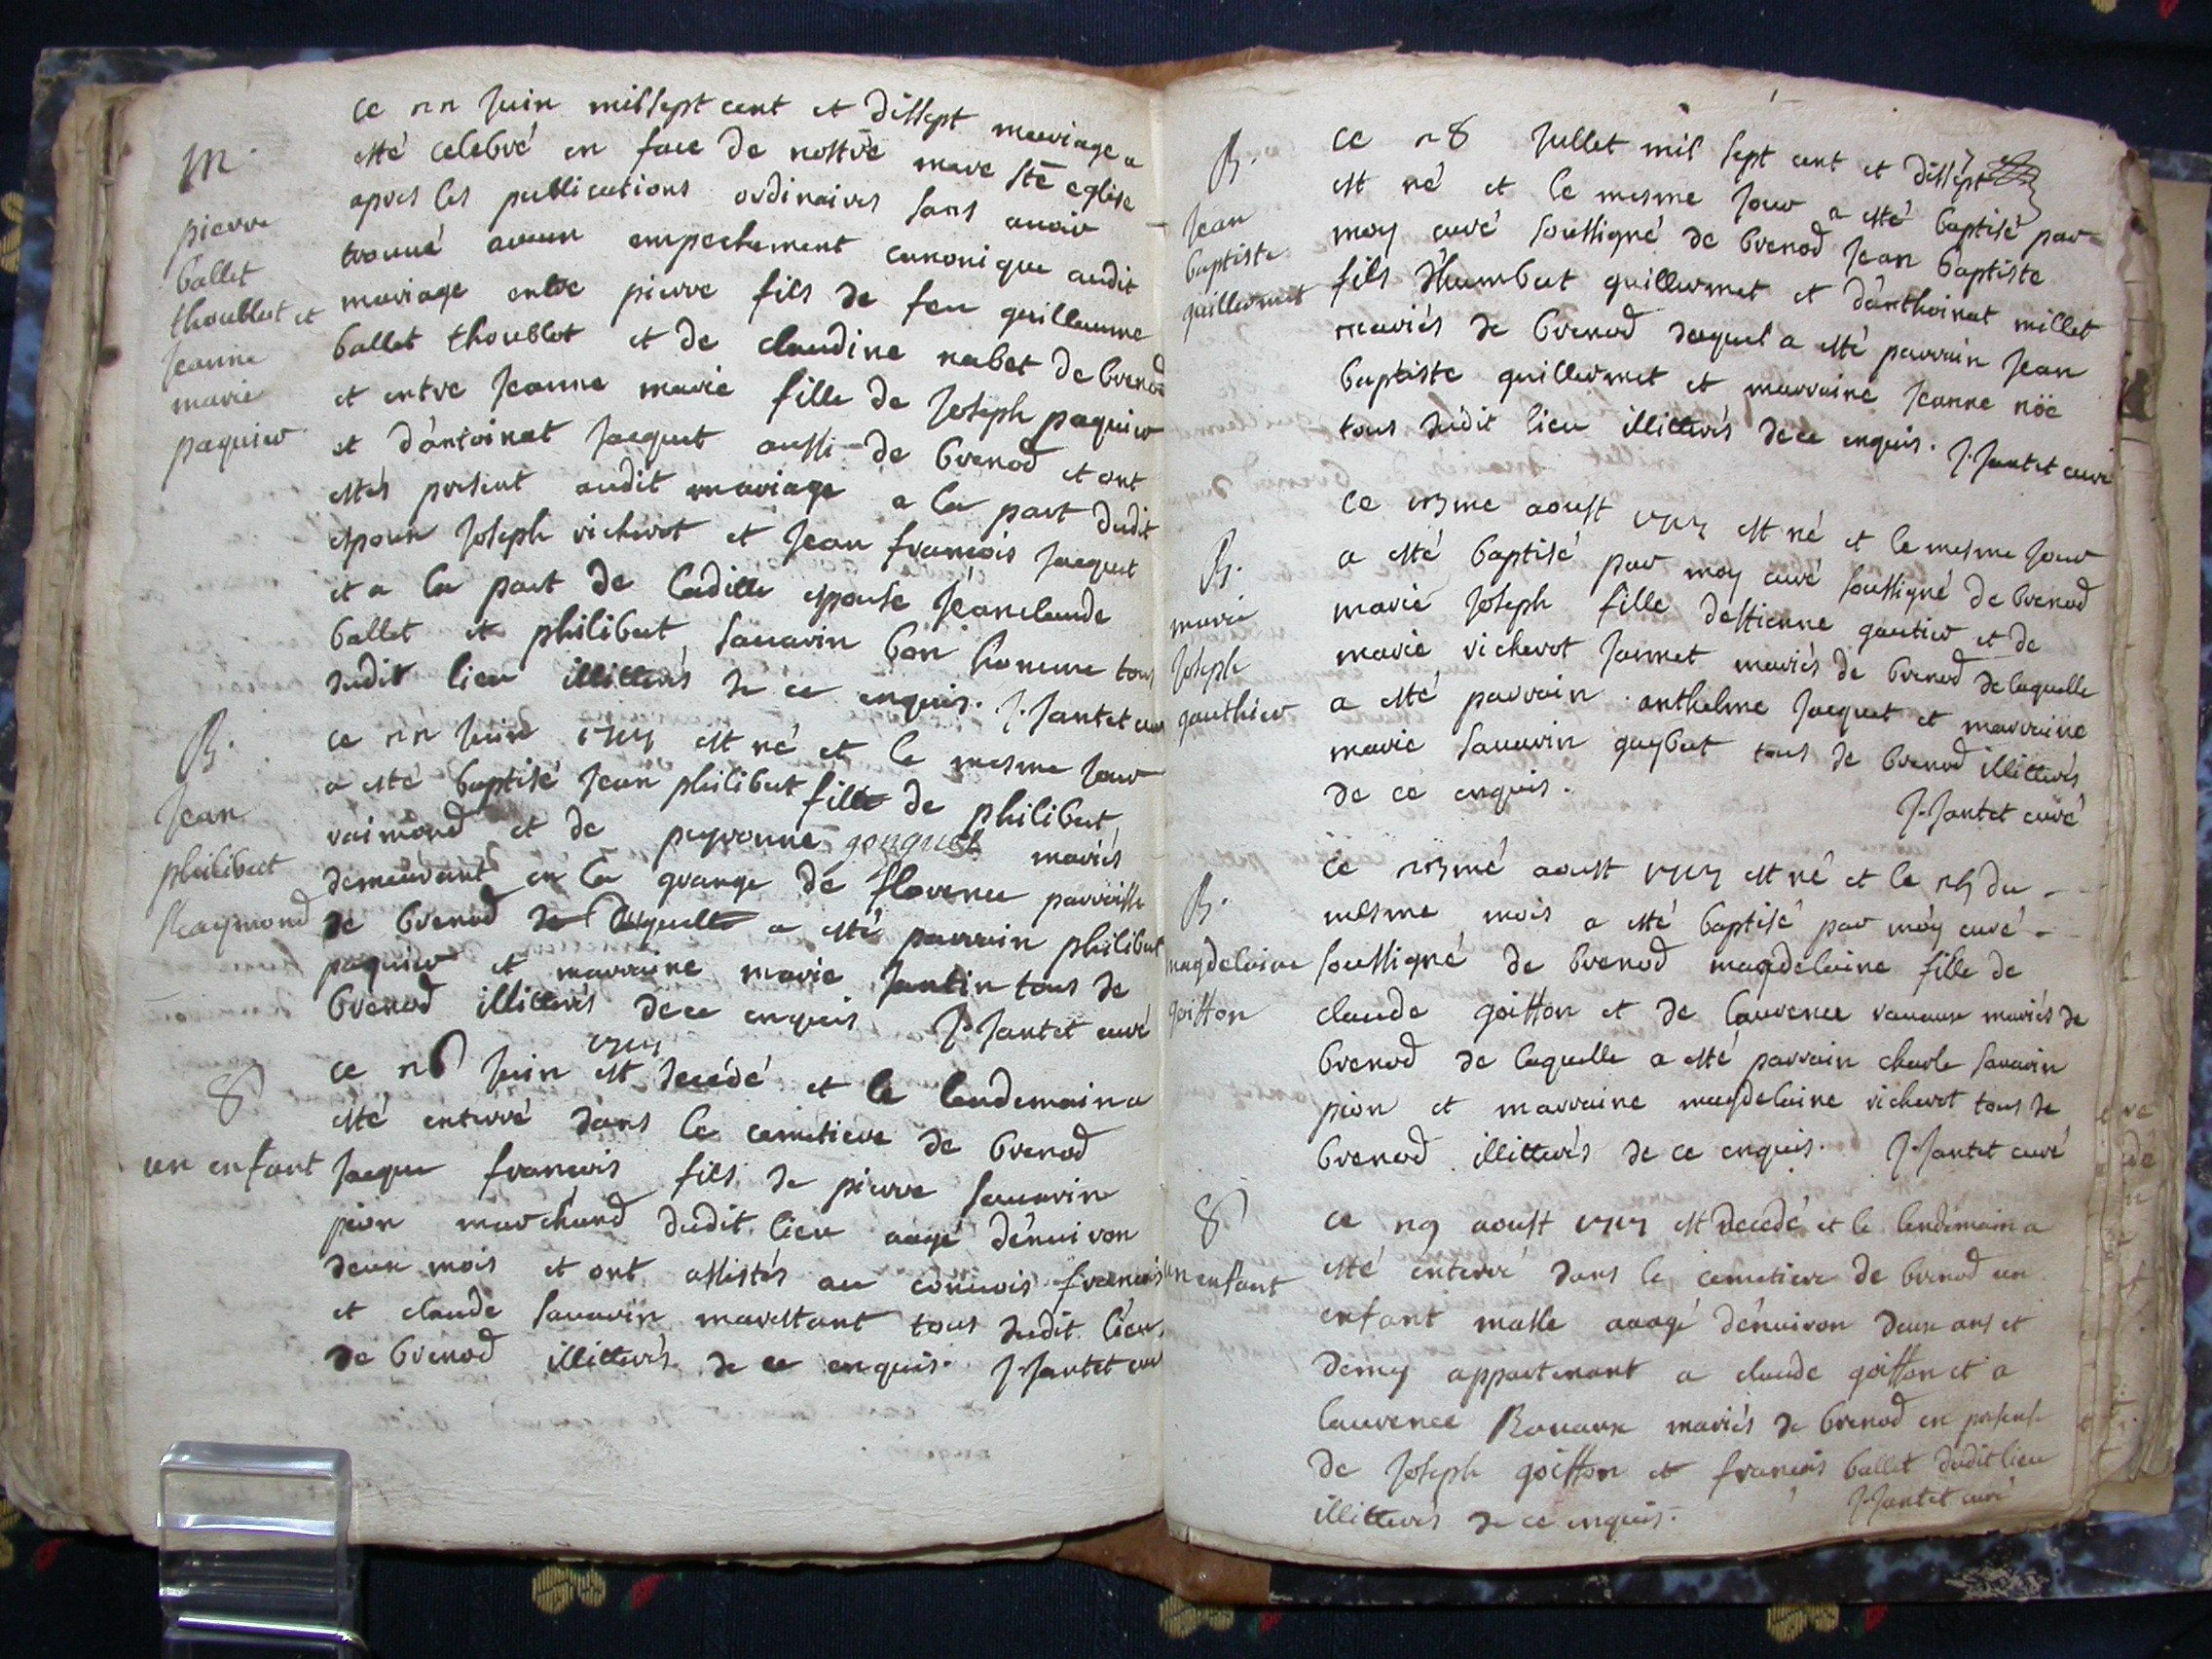 M.
pierre
ballet
thoublot et
Jeanne
marie
paquier
ce 22 Juin mil sept cent et dissept mariage a
esté celebré en face de nostre mere Ste eglise
apres les publications ordinaires sans avoir
trouué aucun empechement canonique audit
mariage entre pierre fils de feu guillaume
ballet thoublot et de claudine nabet de brenod
et entre Jeanne marie fille de Joseph paquier
et d'antoinet Jacquet aussi de brenod et ont
estés present audit mariage a la part dudit
espoux Joseph richerot et Jean francois Jacquet
et a la part de ladille espouse Jeanclaude
ballet et philibert sauarin bon homme tous
dudit lieu illitterés de ce enquis. J. Jantet cur
B.
Jean
philibert
Raymond
ce 22 Juin 1717 est né et le mesme Jour
a esté baptisé Jean philibert fille de philibert
raimond et de peyronne gonguet mariés
demeurant en la grange de florence parroisse
de brenod de laquelle a esté parrain philibert
paquier et marraine marie Jantin tous de
brenod illitterés de ce enquis J. Jantet curé
8
un enfant
1717
ce 26 Juin est decédé et le lendemain a
esté enterré dans le cemetiere de brenod
Jacque francois fils de pierre sauarin
pion marchand dudit lieu aagé d'enuiron
deux mois et ont assistés au conuois francois
et claude sauarin marestant tous dudit lieu
de brenod illitterés de ce enquis. J. Jantet cur
B.
Jean
baptiste
guillermet
ce 28 Jullet mil sept cent et dissept
est né et le mesme Jour a esté baptisé par
moy curé soussigné de brenod Jean baptiste
fils d'humbert guillermet et d'anthoinet millet
mariés de brenod duquel a esté parrain Jean
baptiste guillermet et marraine Jeanne nöe
tous dudit lieu illitterés de ce enquis. J. Jantet curé
B.
marie
Joseph
gauthier
ce 13me aoust 1717 est né et le mesme Jour
a esté baptisé par moy curé soussigné de brenod
marie Joseph fille d'estienne gautier et de
marie richerot Jannet mariés de brenod de laquelle
a esté parrain anthelme Jacquet et marraine
marie sauarin guybert tous de brenod illitterés
de ce enquis.
J. Jantet curé
B.
magdelaine
goiffon
ce 23mé aoust 1717 est né et le 25 du
mesme mois a esté baptisé par moy curé
soussigné de brenod magdelaine fille de
claude goiffon et de laurence rauaux mariés de
brenod de laquelle a esté parrain charle sauarin
pion et marraine magdelaine richerot tous de
brenod illitterés de ce enquis. J. Jantet curé
8
un enfant
ce 29 aoust 1717 est decedé et le lendemain a
esté enterré dans le cemetiere de brenod un
enfant masle aagé d'enuiron deux ans et
demy appartenant a claude goiffon et a
laurence Rauaux mariés de brenod en presense
de Joseph goiffon et francois ballet dudit lieu
illitterés de ce enquis.
J. Jantet curé